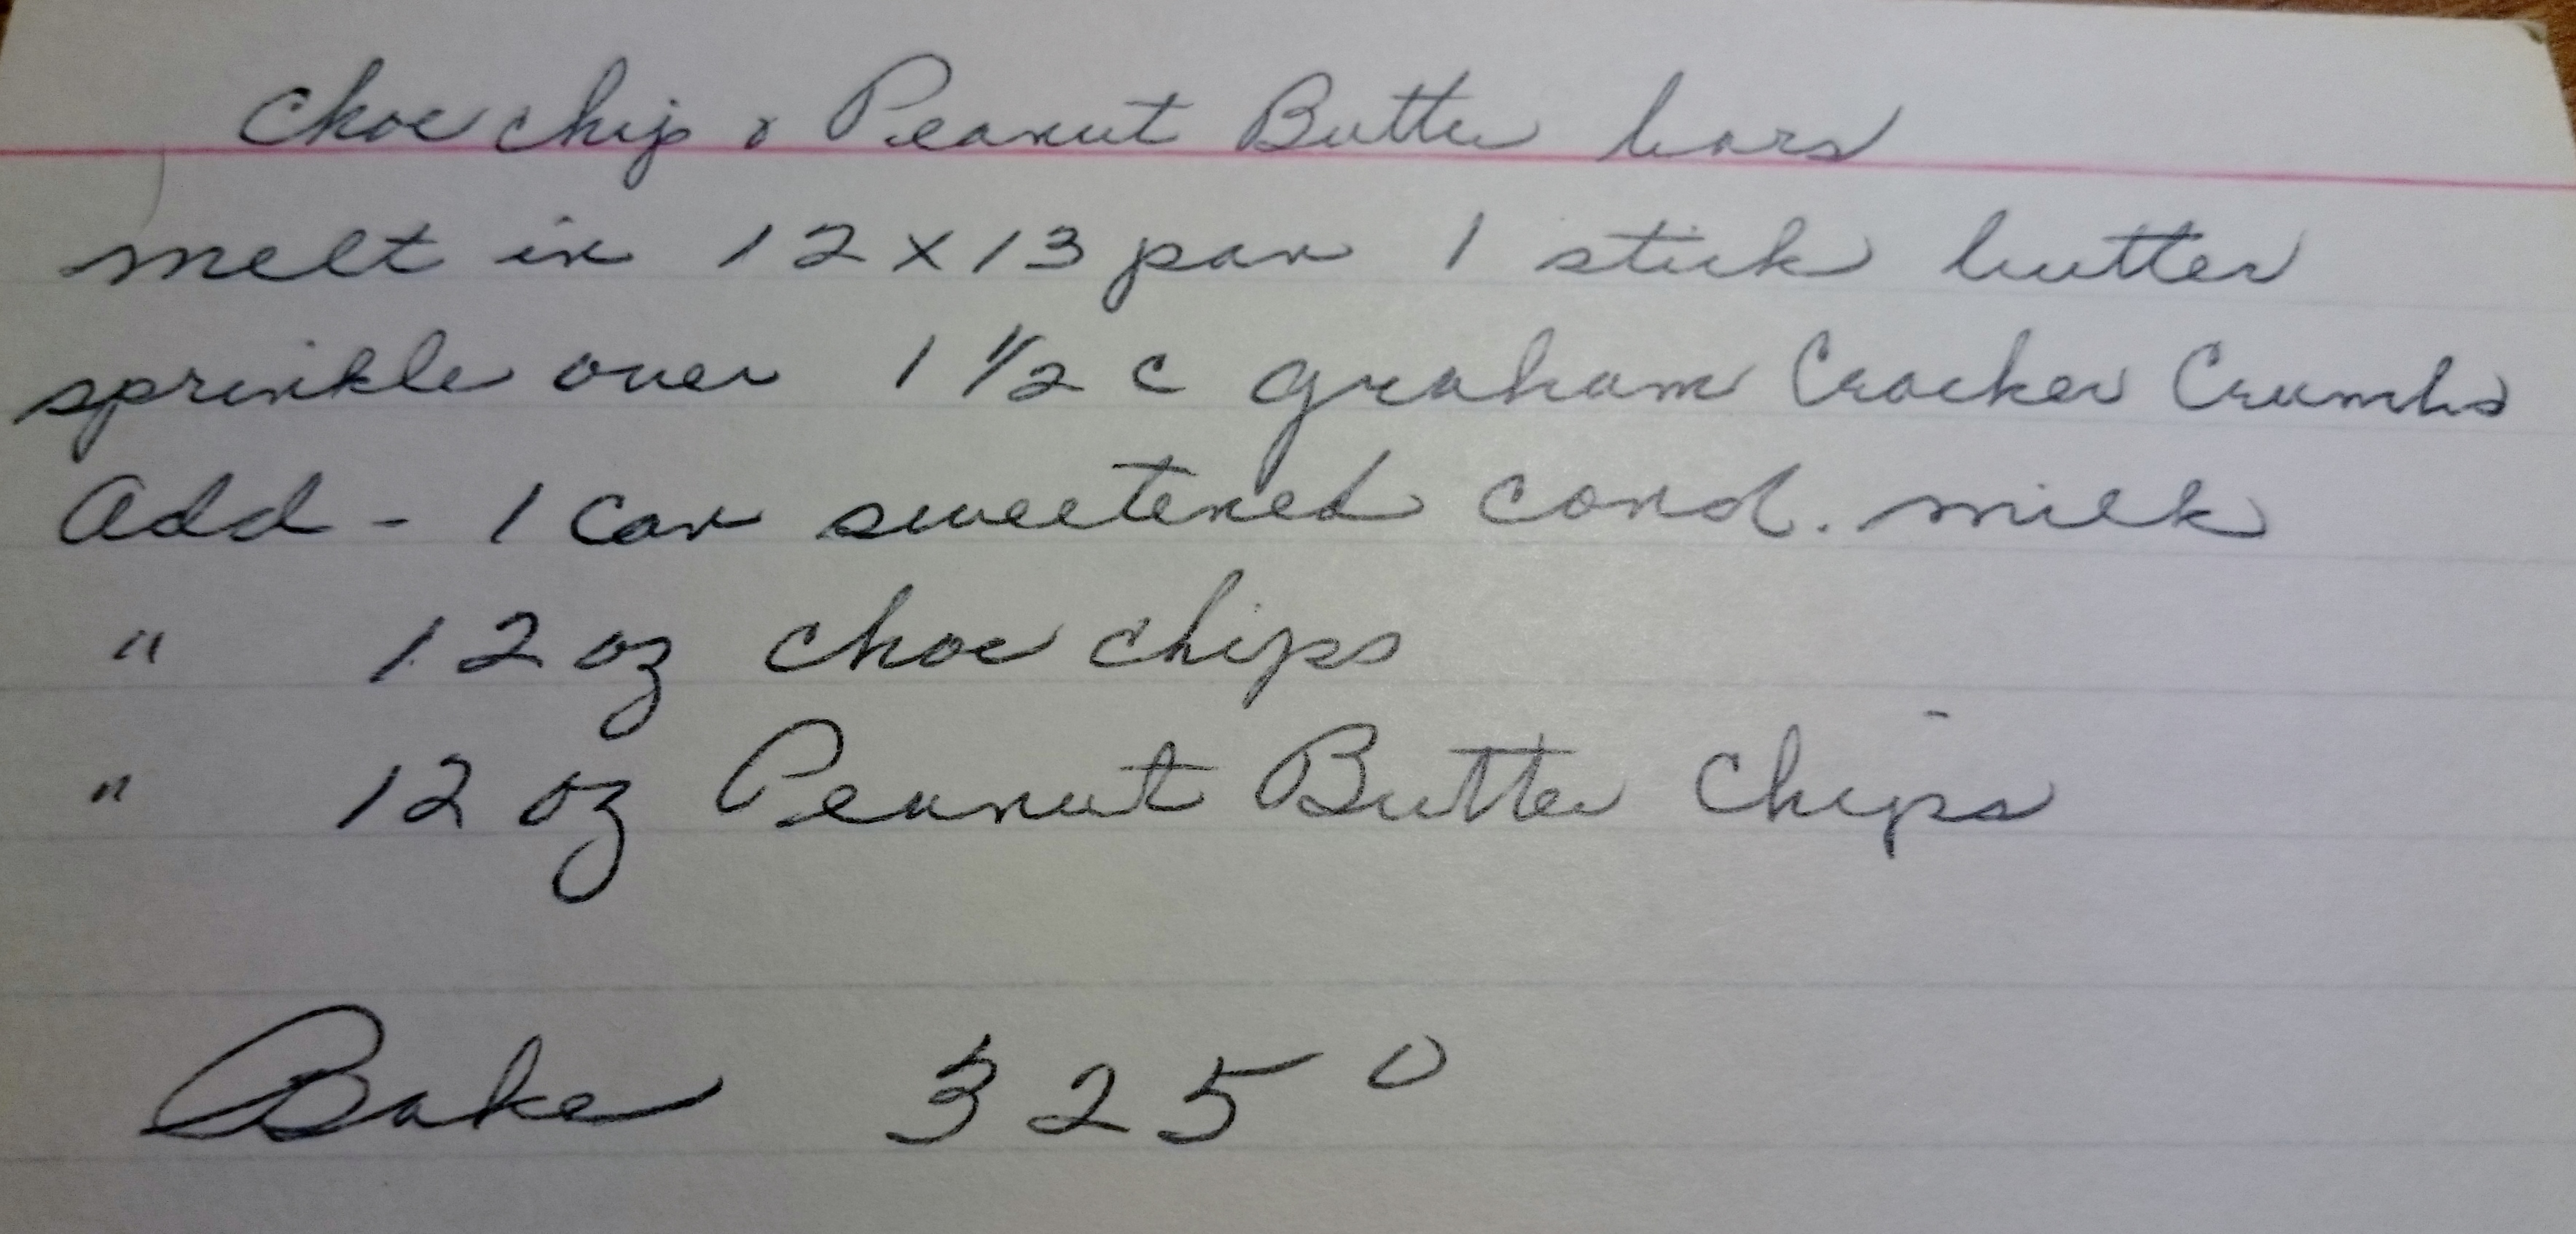 Choc chip & Peanut Butter bars
melt in 12 x 13 pan 1 stick butter
sprinkle over 1 1/2 c graham Cracker Crumbs
Add - 1 Can sweetened cond. milk
" 12 oz choc chips
" 12 oz Peanut Butter Chips
Bake 325°